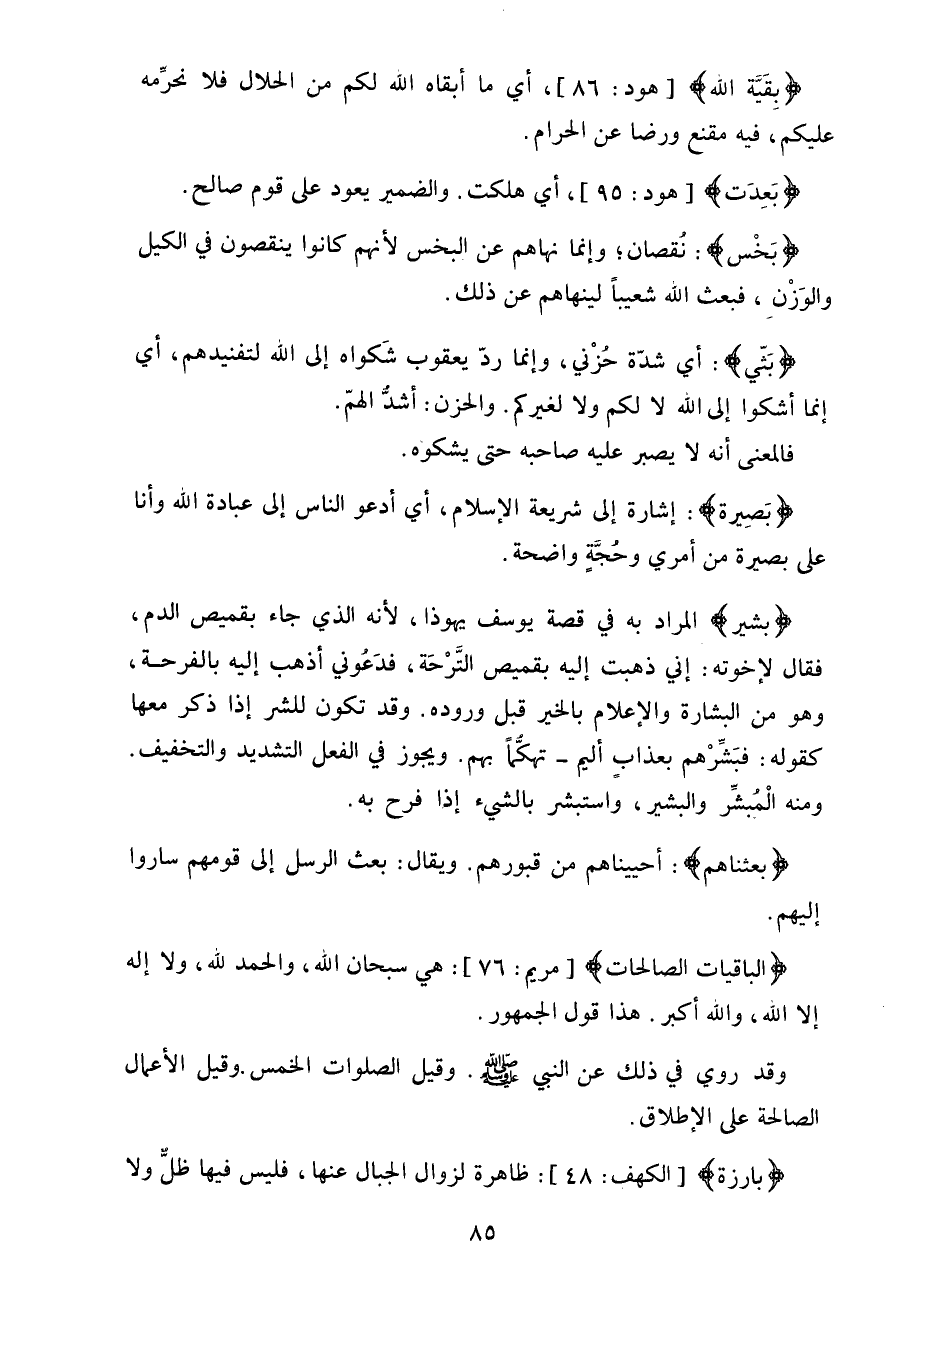 ﴿بقَيَّة الله﴾ [هود: ٨٦]، أي ما أبقاه الله لكم من الحلال فلا نحرِّمه
عليكم، فيه مقنع ورضا عن الحرام.
﴿بَعِدَت﴾ [هود: ٩٥]، أي هلكت. والضمير يعود على قوم صالح.
﴿بَخْس﴾: نُقصان؛ وإنما نهاهم عن البخس لأنهم كانوا ينقصون في الكيل
والوَزْنِ، فبعث الله شعيباً لينهاهم عن ذلك.
﴿بَثّي﴾: أي شدّة حُزْني، وإنما ردّ يعقوب شَكواه إلى الله لتفنيدهم، أي
إنما أشكوا إلى الله لا لكم ولا لغيركم. والحزن: أشدُّ الهمّ.
فالمعنى أنه لا يصبر عليه صاحبه حتى يشكوه.
﴿بَصِيرة﴾: إشارة إلى شريعة الإسلام، أي أدعو الناس إلى عبادة الله وأنا
على بصيرة من أمري وحُجَّةٍ واضحة.
﴿بشير﴾ المراد به في قصة يوسف يهوذا، لأنه الذي جاء بقميص الدم،
فقال لإخوته: إني ذهبت إليه بقميص التَّرْحَة، فدَعُوني أذهب إليه بالفرحـة،
وهو من البشارة والإعلام بالخير قبل وروده. وقد تكون للشر إذا ذكر معها
كقوله: فبَشِّرْهم بعذابٍ أليم - تهكُّماً بهم. ويجوز في الفعل التشديد والتخفيف.
ومنه الْمُبشِّر والبشير، واستبشر بالشيء إذا فرح به.
﴿بعثناهم﴾: أحييناهم من قبورهم. ويقال: بعث الرسل إلى قومهم ساروا
إليهم.
﴿الباقيات الصالحات﴾ [مريم: ٧٦]: هي سبحان الله، والحمد لله، ولا إله
إلا الله، والله أكبر. هذا قول الجمهور.
وقد روي في ذلك عن النبي ﷺ. وقيل الصلوات الخمس.وقيل الأعمال
الصالحة على الإطلاق.
﴿بارزة﴾ [الكهف: ٤٨]: ظاهرة لزوال الجبال عنها، فليس فيها ظلٌّ ولا
٨٥